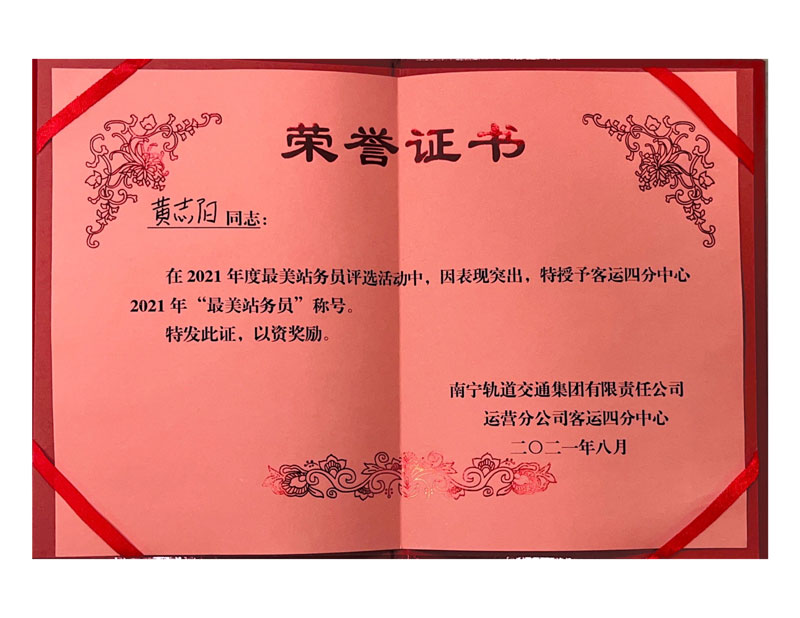 荣誉证书
黄志阳 同志：
在 2021 年度最美站务员评选活动中，因表现突出，特授予客运四分中心
2021 年 “最美站务员” 称号。
特发此证，以资奖励。
南宁轨道交通集团有限责任公司
运营分公司客运四分中心
二〇二一年八月